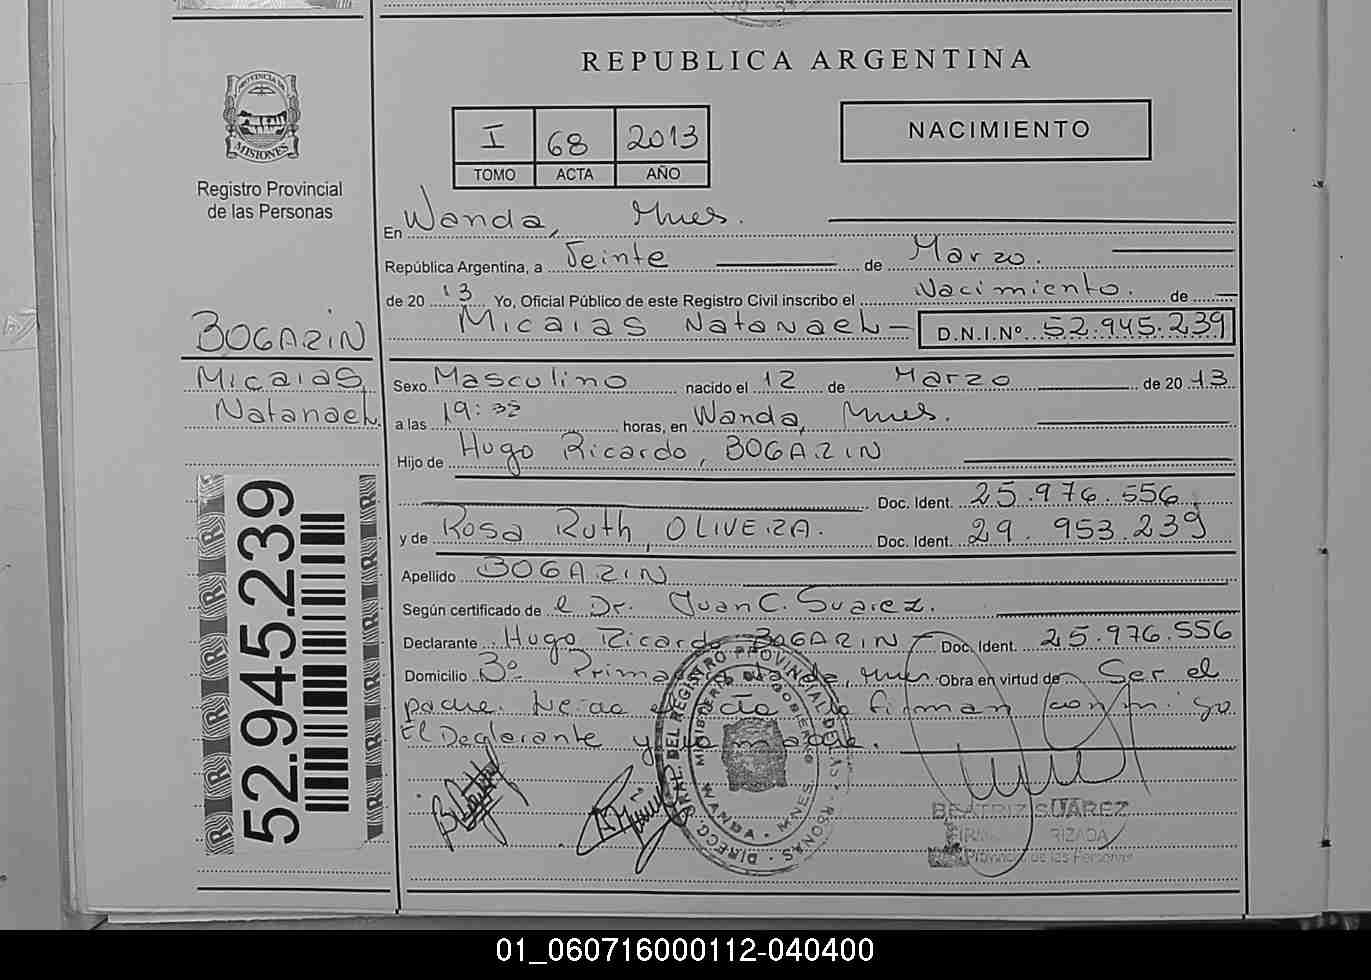 REPUBLICA ARGENTINA
PROVINCIA DE
MISIONES
Registro Provincial
de las Personas
I 68 2013
TOMO ACTA AÑO
NACIMIENTO
En Wanda, Mnes.
República Argentina, a Veinte de Marzo.
de 20 13 Yo, Oficial Público de este Registro Civil inscribo el Nacimiento. de
Micaias Natanael D.N.I.Nº 52.945.239
BOGARIN
Micaias
Natanael
Sexo Masculino nacido el 12 de Marzo de 20 13
a las 19:32 horas, en Wanda, Mnes.
Hijo de Hugo Ricardo, BOGARIN
Doc. Ident. 25.976.556
y de Rosa Ruth, OLIVEIRA. Doc. Ident. 29.953.239
Apellido BOGARIN
Según certificado de el Dr. Juan C. Suarez.
Declarante Hugo Ricardo BOGARIN Doc. Ident. 25.976.556
Domicilio Bº Prima Wanda, Mnes Obra en virtud de Ser el
padre. Leida el acta la firman conmigo
El Declarante y la madre.
52.945.239
DIRECC. GRAL. DEL REGISTRO PROVINCIAL DE LAS PERSONAS
MINISTERIO DE GOBIERNO
WANDA - MNES.
BEATRIZ SUAREZ
Provincial de las Personas
01_060716000112-040400